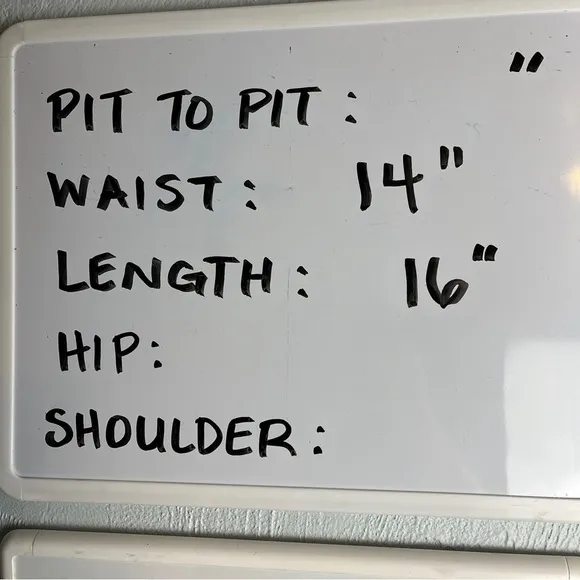 PIT TO PIT: "
WAIST: 14"
LENGTH: 16"
HIP:
SHOULDER: